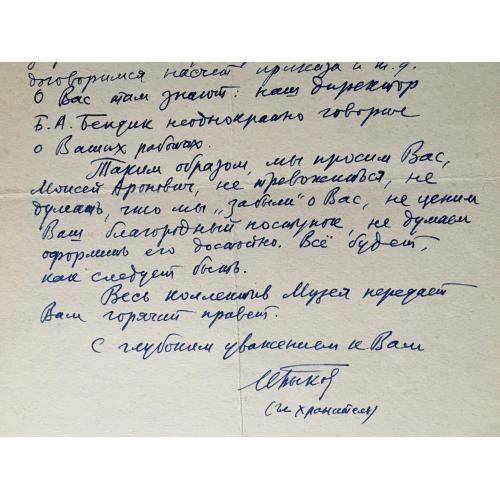 договоримся насчет приказа и т.д.
О Вас там знают: наш директор
Б.А. Бендик неоднократно говорил
о Ваших работах.
Таким образом, мы просим Вас,
Моисей Аронович, не тревожиться, не
думать, что мы „забыли" о Вас, не ценим
Ваш благородный поступок, не думаем
оформить его достойно. Всё будет,
как следует быть.
Весь коллектив Музея передает
Вам горячий привет.
С глубоким уважением к Вам
(гл. хранитель)